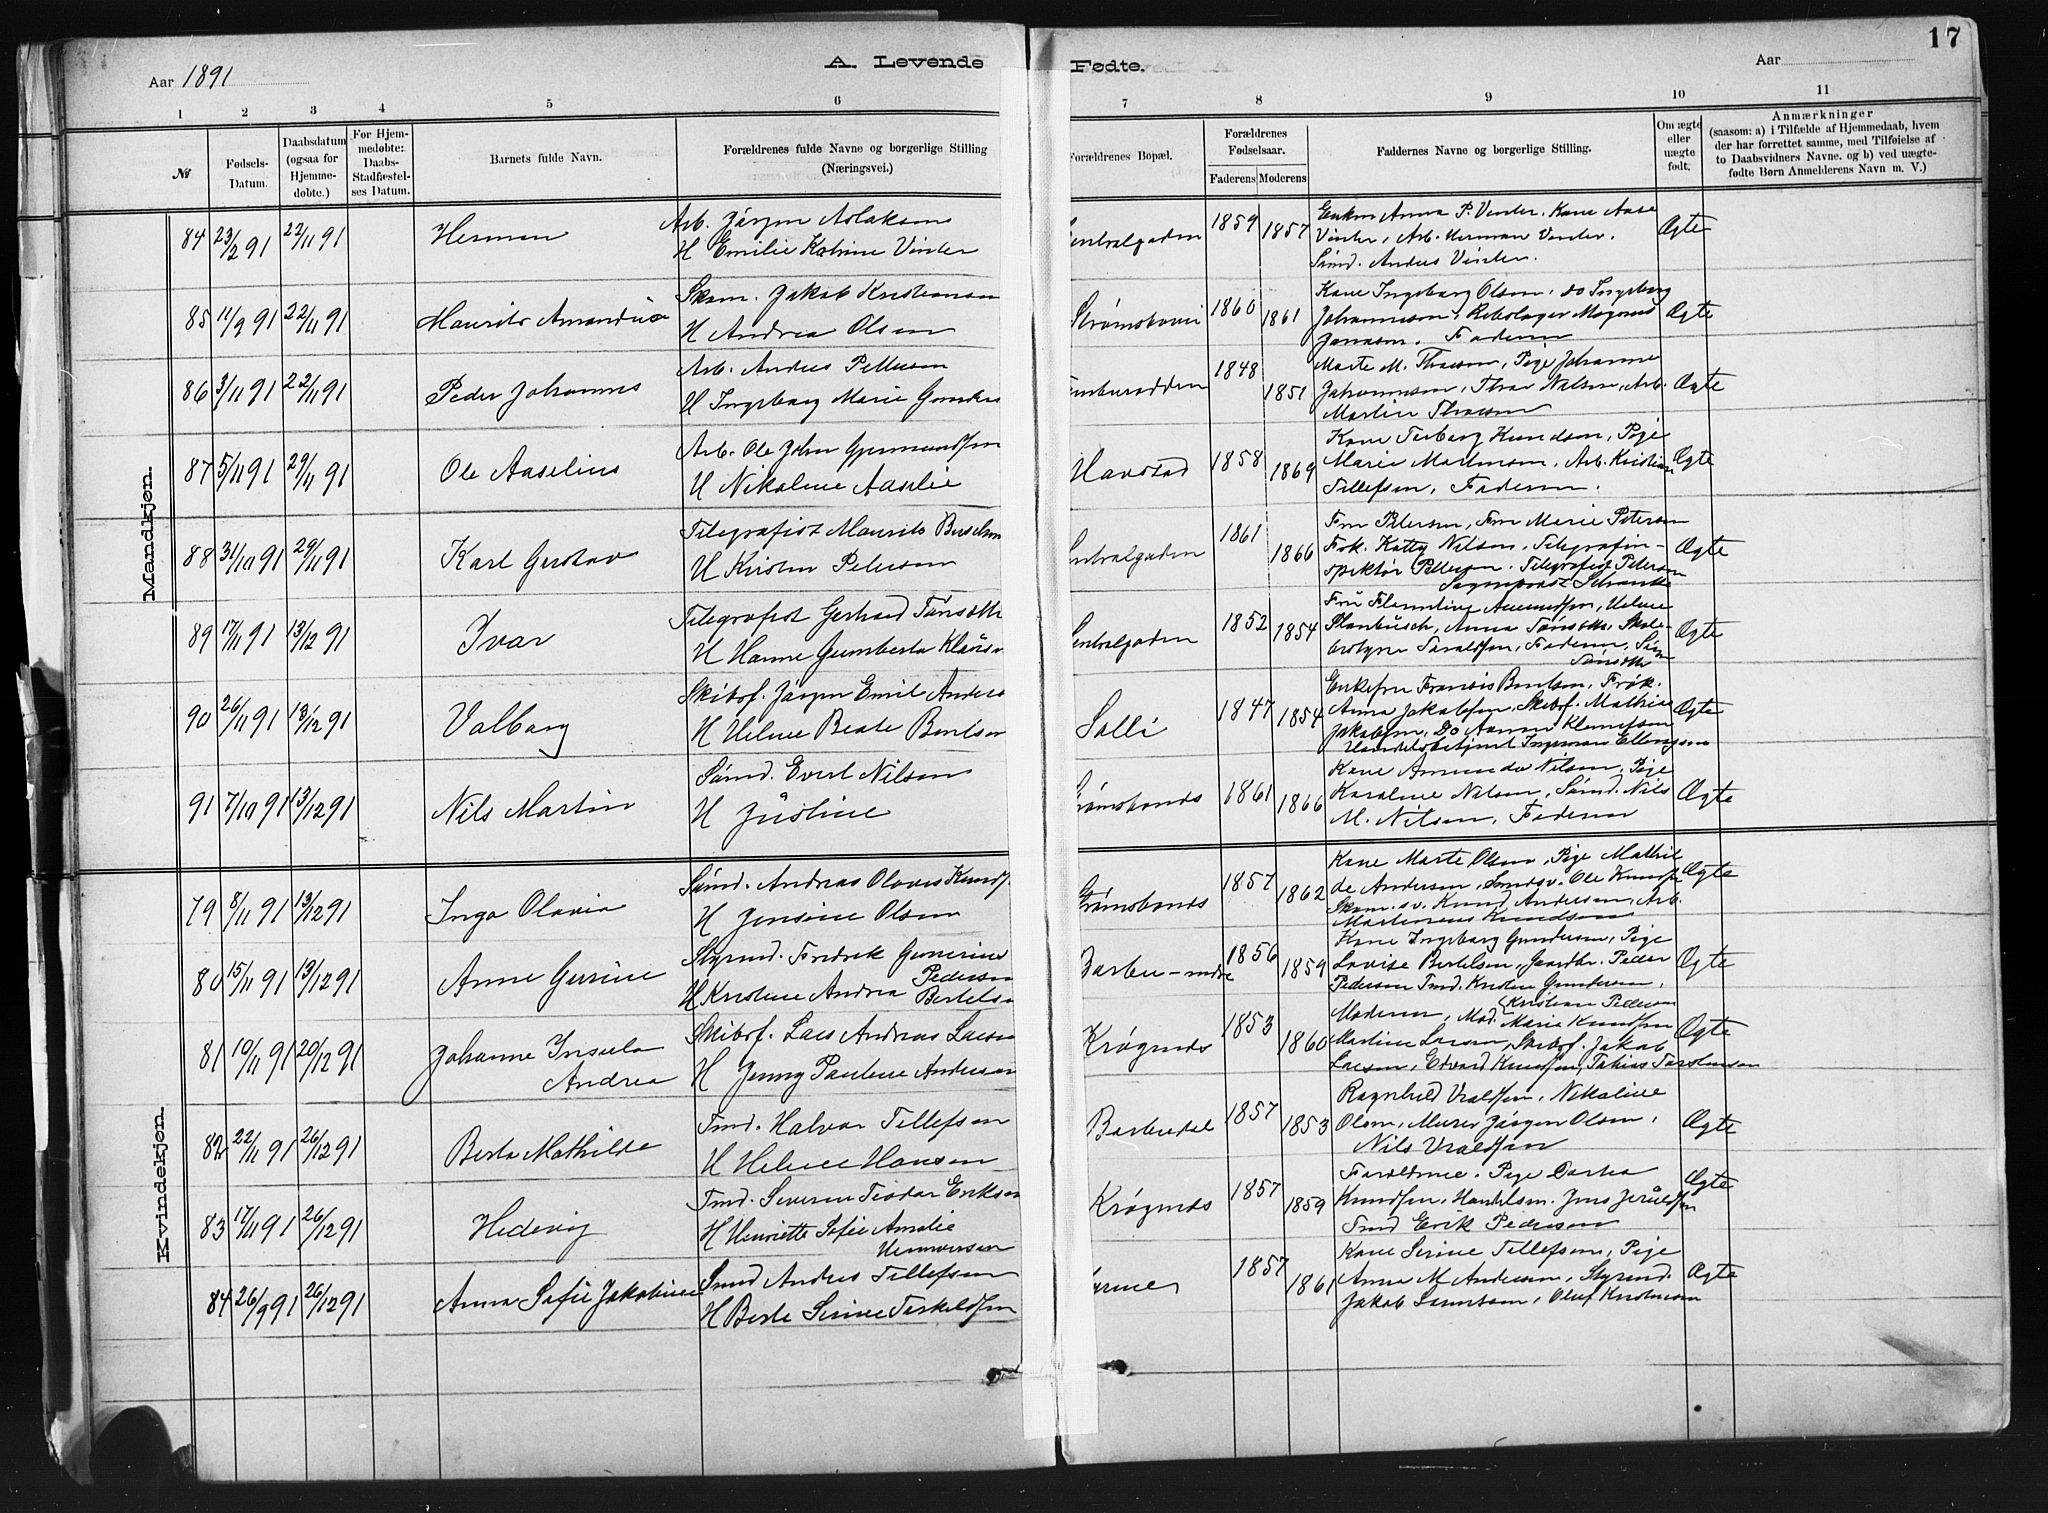 17
Aar 1891
A. Levende Fødte.
Aar
1 2 3 4 5 6 7 8 9 10 11
№
Fødsels-Datum.
Daabsdatum (ogsaa for Hjemmedøbte.)
For Hjemmedøbte: Daabs-Stadfæstelses Datum.
Barnets fulde Navn.
Forældrenes fulde Navne og borgerlige Stilling (Næringsvei.)
Forældrenes Bopæl.
Forældrenes Fødselsaar.
Faderens Moderens
Faddernes Navne og borgerlige Stilling.
Om ægte eller uægte født.
Anmærkninger
(saasom: a) i Tilfælde af Hjemmedaab, hvem
der har forrettet samme, med Tilføielse af
to Daabsvidners Navne. og b) ved uægte-
fødte Børn Anmelderens Navn m. V.)
Mandkjøn.
84 23/2 91 22/11 91 Herman
Arb. Jörgen Aslaksen
H Emilie Katrine Vinter
Sentralgaden 1859 1857
Enken Anna P. Vinter. Kone Aase
Vinter, Arb. Herman Vinter.
Sömd. Anders Vinter.
Ægte
85 11/9 91 22/11 91 Maurits Amandus
Skom. Jakob Kristensen
H Andrea Olsen
1860 1861
Kone Ingeborg Olsen, do Ingeborg
Johannesen, Rebslager Magnus
Fadern
Ægte
86 3/11 91 22/11 91 Peder Johannes
Arb. Anders Pettersen
H Ingeborg Marie
1848 1851
Marte M. Thorsen, Pige Johanne
Johannesen, Thor Nilsen, Arb.
Martin Thorsen
Ægte
87 5/11 91 29/11 91 Ole Aaselius
Arb. Ole John Gjermundsen
H Nikoline Aaselie
Havstad 1858 1869
Kone Terborg Knudsen, Pige
Marie Martinsen, Arb. Kristian
Tellefsen, Faderen.
Ægte
88 31/10 91 29/11 91 Karl Gustav
Telegrafist Maurits
H Kirsten Petersen
Sentralgaden 1861 1866
Fru Petersen, Fru Marie Petersen
Frk. Katty Nilsen, Telegrafin-
spektør Petersen. Telegrafist Petersen
Ægte
89 17/11 91 13/12 91 Ivar
Telegrafist Gerhard
H Hanne Gumberta
Sentralgaden 1852 1854
Fru Flemtine Amundsen, Helene
Planbusch, Anna
Taraldsen, Faderen,
Ægte
90 26/11 91 13/12 91 Valborg
Skibsf. Jörgen Emil Anders
H Helene Beate Bentsen
Solli 1847 1854
Enkefru Fransis Bentsen, Frøk.
Anna Jakobsen, Skibsf. Mathias
Jakobsen, Do Klemetsen
Handelsbetjent Ellingsen
Ægte
91 7/10 91 13/12 91 Nils Martin
Sömd. Evert Nilsen
H Justine
Strømsbonds 1861 1866
Kone Amunda Nilsen, Pige
Karoline Nilsen, Sömd. Nils
M. Nilsen, Faderen
Ægte
Kvindekjøn.
79 8/11 91 13/12 91 Inga Olavia
Sömd. Andreas Olaves Knuds.
H Jensine Olsen
Strømsbonds 1857 1862
Kone Marte Olsen, Pige Mathil
de Andersen, Smedsv. Ole Knudsen
Skom.sv. Knud Andersen, Arb.
Martinius Knudsen
Ægte
80 15/11 91 13/12 91 Anne Gurine
Styrmd. Fredrik Gunerius
Pedersen
H Kristine Andrea Bertelsen
Barbu-indre 1856 1859
Kone Ingeborg Gundersen, Pige
Lovise Bertelsen, Gaardbr. Peder
Pedersen Tmd. Kristen Gundersen.
Ægte
81 10/11 91 20/12 91 Johanne Insula
Andrea
Skibsf. Lars Andreas Larsen
H Jenny Pauline Andersen
Krøgenes 1853 1860
Moderen, Mad. Kristiane Pettersen
Marie Knudsen
Martine Larsen, Skibsf. Jakob
Larsen, Edvard Knudsen, Tobias Torstensen
Ægte
82 22/11 91 26/12 91 Berta Mathilde
Tmd. Halvor Tellefsen
H Helene Hansen
Barbudal 1857 1853
Ragnhild Vraldsen, Nikoline
Olsen, Murer Jörgen Olsen,
Nils Vraldsen
Ægte
83 17/11 91 26/12 91 Hedevig
Tmd. Severin Teodor Eriksen
H Henriette Sofie Amalie
Krøgenes 1857 1859
Forældrene. Pige Dortea
Knudsen, Jens
Smd Erik Pedersen
Ægte
84 26/9 91 26/12 91 Anna Sofie Jakobine
Smd Anders Tellefsen
H Berte Serine Terkeldsen
1857 1861
Kone Serine Tellefsen, Pige
Anna M Andersen, Styrmd.
Jakob Samsom, Oluf Kristensen
Ægte